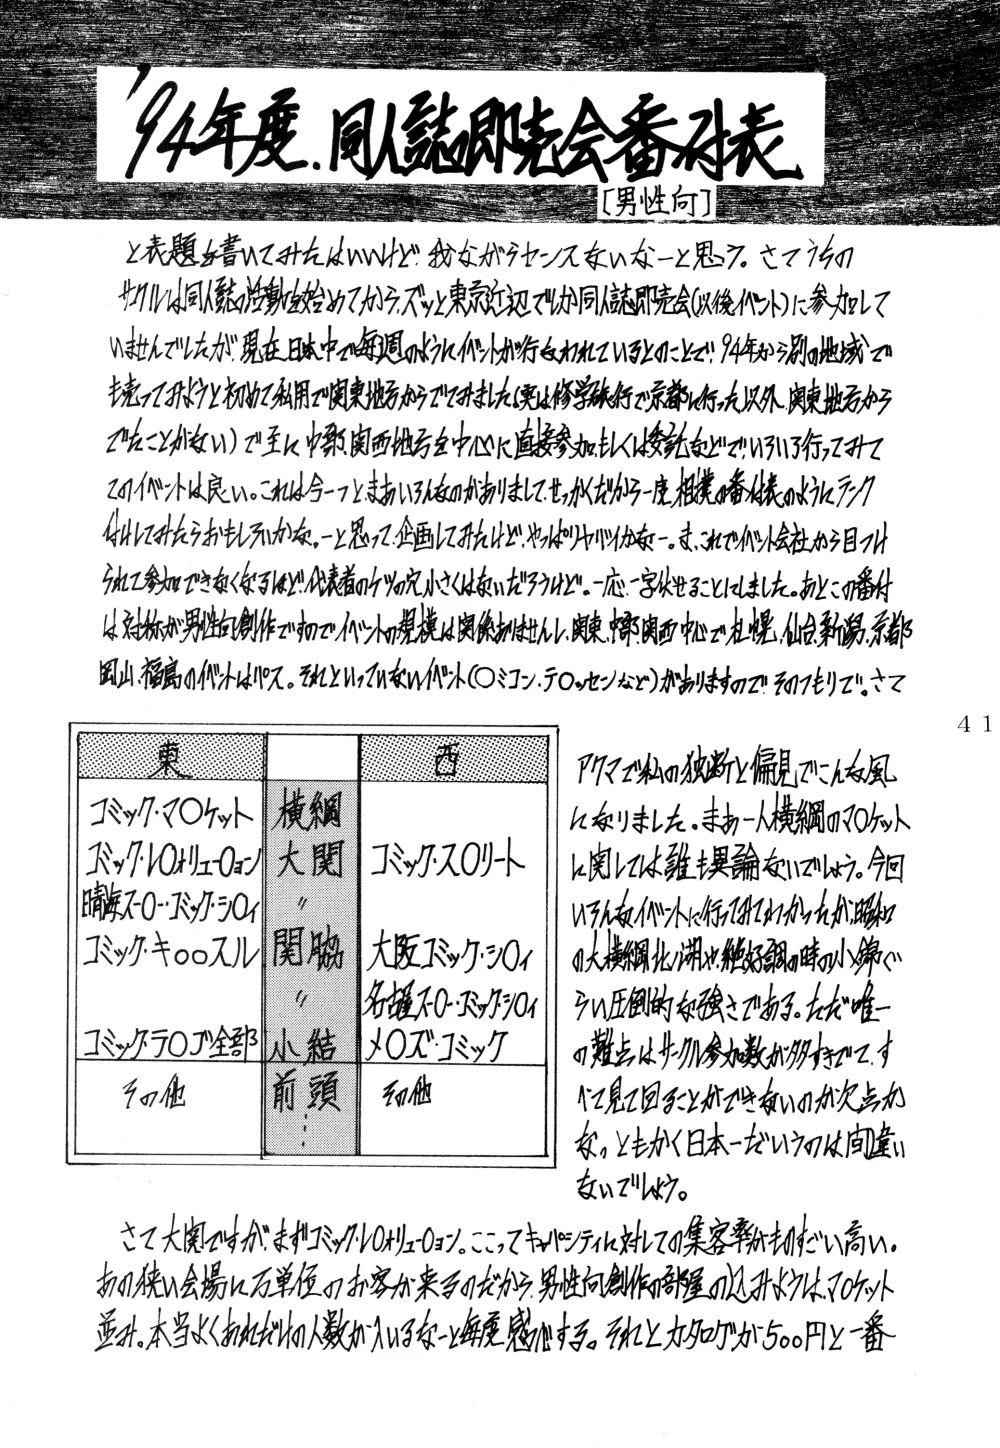 '94年度、同人誌即売会番付表
［男性向］
と表題を書いてみたはいいけど我ながらセンスないなーと思う。さてうちの
サークルは同人誌の活動を始めてから、ズッと東京近辺でしか同人誌即売会(以後イベント)に参加して
いませんでしたが、現在、日本中で毎週のようにイベントが行なわれているとのことで、94年から別の地域で
も売ってみようと初めて私用で関東地方からでてみました(実は修学旅行で京都に行った以外、関東地方から
でたことがない)で主に中部、関西地方を中心に直接参加、もしくは委託などでいろいろ行ってみて
てのイベントは良い。これは今一つとまあいろんなのがありまして、せっかくだから一度、相撲の番付表のようにランク
付けしてみたらおもしろいかな。ーと思って、企画してみたけど、やっぱりヤバイかなー。ま、これでイベント会社から目つけ
られて参加できなくなるほど、代表者のケツの穴小さくはないだろうけど。一応、一字伏せることにしました。あとこの番付
は対称が男性向創作ですのでイベントの規模は関係ありませんし、関東、中部、関西中心で札幌、仙台、新潟、京都
岡山、福島のイベントはパス。それといっていないイベント(〇ミコン、テ〇ッセンなど)がありますので、そのつもりで。さて
41
東 西
コミック・マ〇ケット 横綱
コミック・レ〇ォリュー〇ョン 大関 コミック・ス〇リート
晴海スー〇ー・コミック・シ〇ィ 〃
コミック・キ〇〇スル 関脇 大阪コミック・シ〇ィ
〃 名古屋スー〇ー・コミック・シ〇ィ
コミック・テ〇ゴ全部 小結 メ〇ズ・コミック
その他 前頭 その他
アクマで私の独断と偏見でこんな風
になりました。まあ一人横綱のマ〇ケット
に関しては誰も異論ないでしょう。今回
いろんなイベントに行ってみてわかったが、昭和
の大横綱北ノ湖や、絶好調の時の小錦ぐ
らい圧倒的な強さである。ただ唯一
の難点はサークル参加数が多すぎて、す
べて見て回ることができないのが欠点か
な。ともかく日本一だというのは間違い
ないでしょう。
さて大関ですが、まずコミック・レ〇ォリュー〇ョン。ここってキャパシティに対しての集客率がものすごい高い。
あの狭い会場に万単位のお客が来るのだから、男性向創作の部屋の込みようは、マ〇ケット
並み。本当よくあれだけの人数が入いるなーと毎度感心する。それとカタログが500円と一番